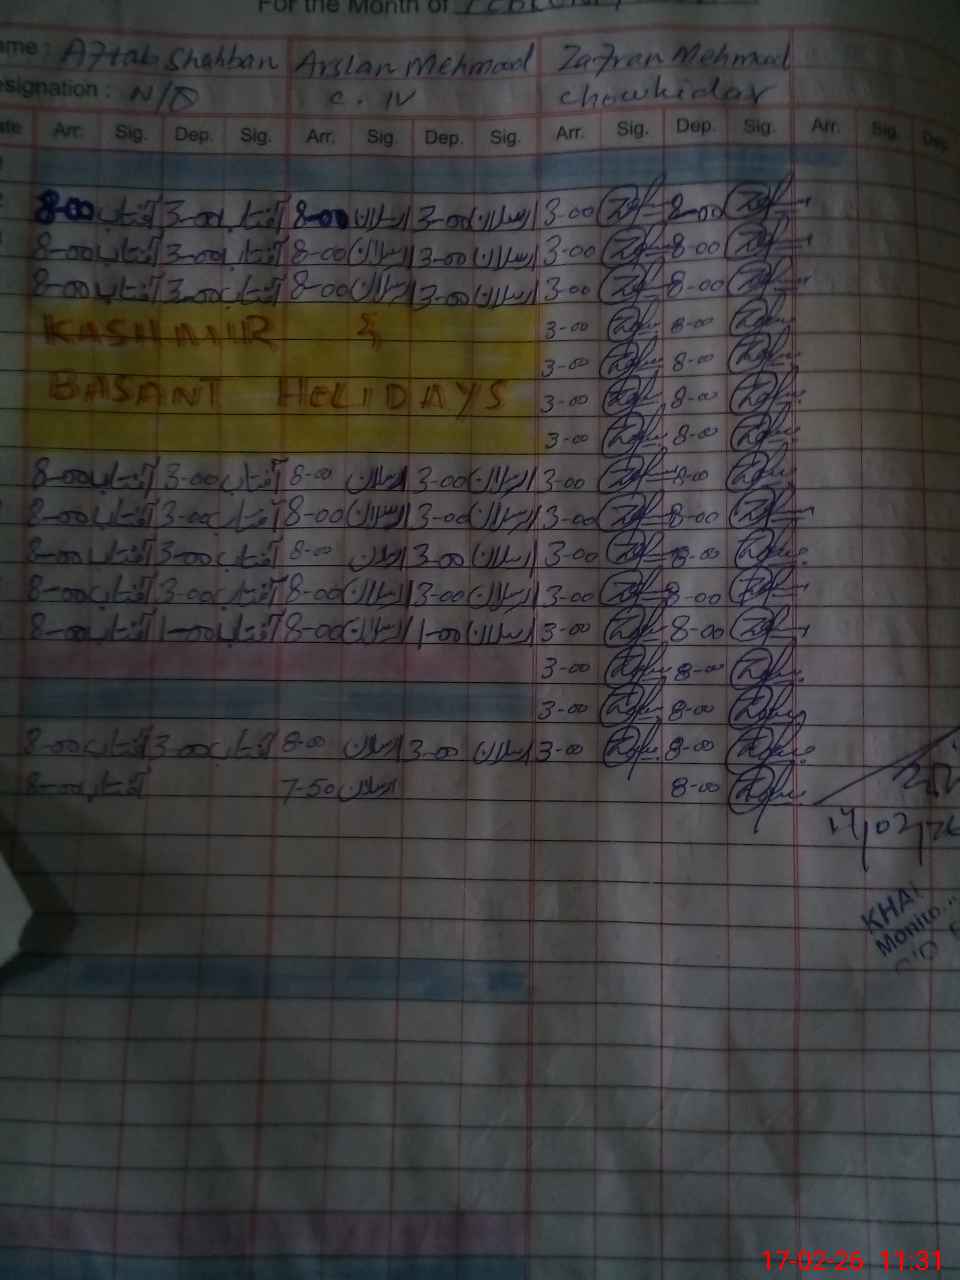 For the Month of
ame : Aftab Shahban Arslan Mehmood Zafran Mehmod
esignation : N/Q C. IV Chowkidar
ate Arr. Sig. Dep. Sig. Arr. Sig. Dep. Sig. Arr. Sig. Dep. Sig. Arr. Sig. Dep
8-00 آفتاب 3-00 آفتاب 8-00 ارسلان 3-00 ارسلان 3-00 8-00
8-00 آفتاب 3-00 آفتاب 8-00 ارسلان 3-00 ارسلان 3-00 8-00
8-00 آفتاب 3-00 آفتاب 8-00 ارسلان 3-00 ارسلان 3-00 8-00
KASHMIR & 3-00 8-00
3-00 8-00
BASANT HELIDAYS 3-00 8-00
3-00 8-00
8-00 آفتاب 3-00 آفتاب 8-00 ارسلان 3-00 ارسلان 3-00 8-00
8-00 آفتاب 3-00 آفتاب 8-00 ارسلان 3-00 ارسلان 3-00 8-00
8-00 آفتاب 3-00 آفتاب 8-00 ارسلان 3-00 ارسلان 3-00 8-00
8-00 آفتاب 3-00 آفتاب 8-00 ارسلان 3-00 ارسلان 3-00 8-00
8-00 آفتاب 1-00 آفتاب 8-00 ارسلان 1-00 ارسلان 3-00 8-00
3-00 8-00
3-00 8-00
8-00 آفتاب 3-00 آفتاب 8-00 ارسلان 3-00 ارسلان 3-00 8-00
8-00 آفتاب 7-50 ارسلان 8-00
17/02/26
KHAI
Monito
17-02-26 11:31